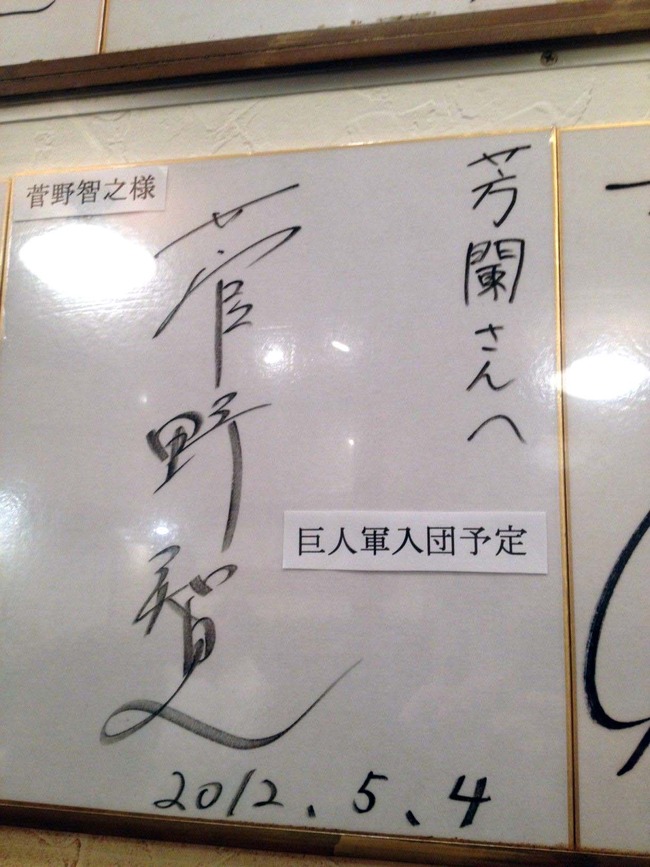 菅野智之様
芳蘭さんへ
菅野智之
巨人軍入団予定
2012.5.4